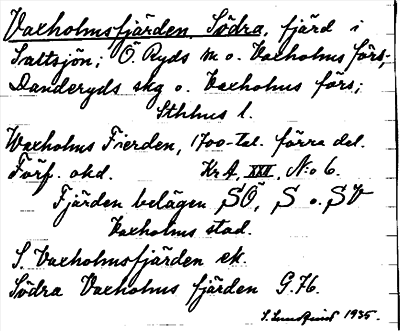 Vaxholmsfjärden, Södra, fjärd i
Saltsjön; Ö. Ryds sn o. Vaxholms förs.,
Danderyds skg o. Vaxholms förs;
Sthlms l.
Waxholms Fierden, 1700-tal. förra del.
Förf. okd. KrA, XXI, N:o 6.
Fjärden belägen SÖ, S o. SV
Vaxholms stad.
S. Vaxholmsfjärden ek.
Södra Vaxholms fjärden G.76.
S. Lundquist 1935.